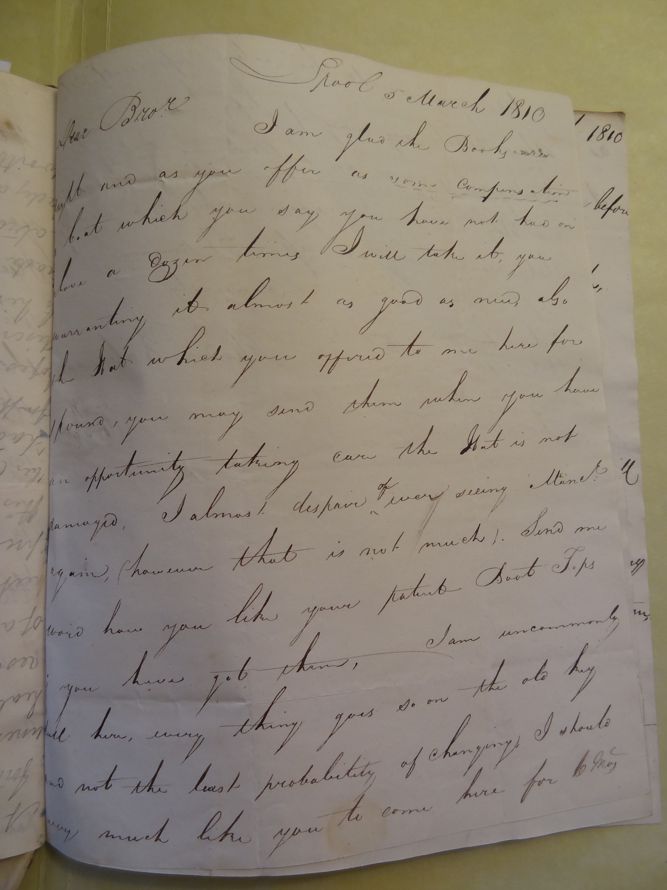 Lpool 5 March 1810
Dear Bror.
I am glad the Books
and as you offer as some compensation
boat which you say you have not had on
above a dozen times I will take it, you
warranting it almost as good as new, also
Hat which you offered to me here for
pound, you may send them when you have
an opportunity taking care the Hat is not
damaged, I almost despair of ever seeing Manc.r
again, (however that is not much). Send me
word how you like your patent Boot Tops
you have got them, I am uncommonly
well here, every thing goes so on the old key
and not the least probability of changing, I should
very much like you to come here for 6 Mos
1810
before